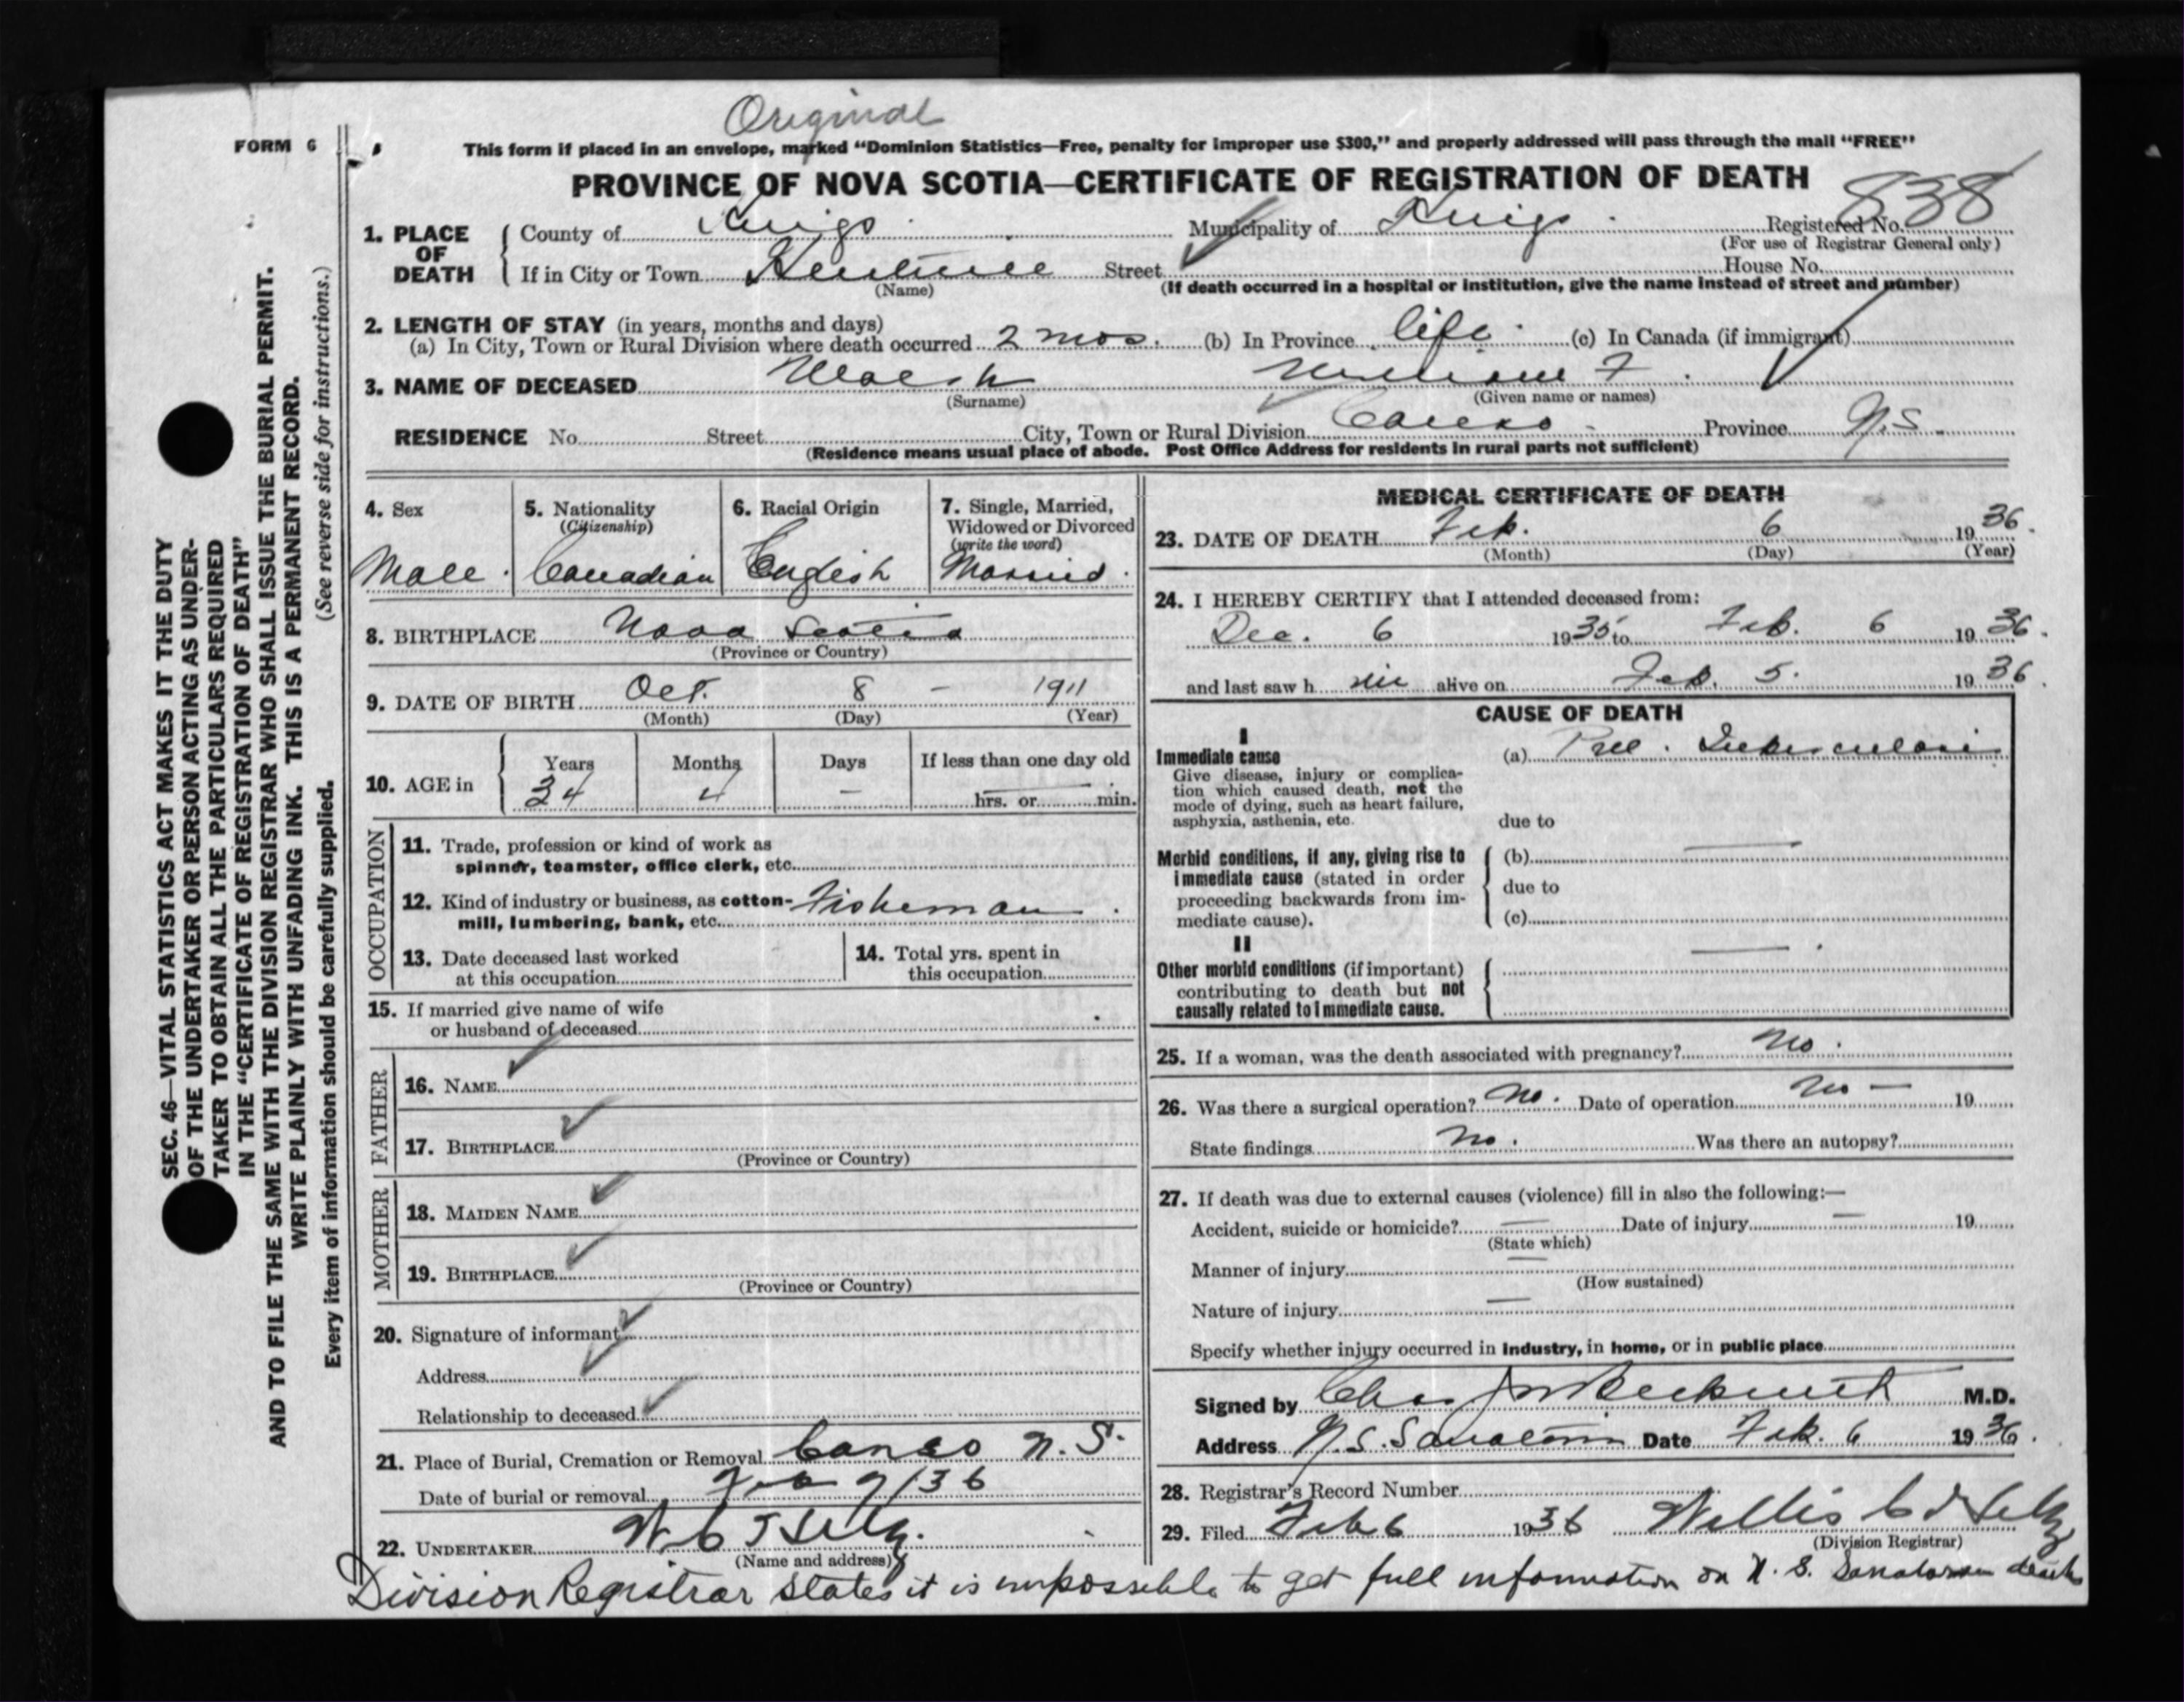 Original
FORM 6
This form if placed in an envelope, marked “Dominion Statistics—Free, penalty for improper use $300,” and properly addressed will pass through the mail “FREE”
PROVINCE OF NOVA SCOTIA—CERTIFICATE OF REGISTRATION OF DEATH
838
1. PLACE OF DEATH County of Kings Municipality of Kings Registered No.
(For use of Registrar General only)
If in City or Town Kentville Street House No.
(Name) (If death occurred in a hospital or institution, give the name instead of street and number)
2. LENGTH OF STAY (in years, months and days)
(a) In City, Town or Rural Division where death occurred 2 mos. (b) In Province life. (c) In Canada (if immigrant)
3. NAME OF DECEASED Walsh William F.
(Surname) (Given name or names)
RESIDENCE No. Street City, Town or Rural Division Canso Province N.S.
(Residence means usual place of abode. Post Office Address for residents in rural parts not sufficient)
4. Sex 5. Nationality (Citizenship) 6. Racial Origin 7. Single, Married, Widowed or Divorced (write the word)
Male. Canadian English Married.
8. BIRTHPLACE Nova Scotia
(Province or Country)
9. DATE OF BIRTH Oct. 8 – 1911
(Month) (Day) (Year)
10. AGE in Years Months Days If less than one day old
34 4 – hrs. or min.
OCCUPATION
11. Trade, profession or kind of work as
spinner, teamster, office clerk, etc.
12. Kind of industry or business, as cotton-
mill, lumbering, bank, etc. Fisherman.
13. Date deceased last worked
at this occupation
14. Total yrs. spent in
this occupation
15. If married give name of wife
or husband of deceased
FATHER
16. NAME
17. BIRTHPLACE
(Province or Country)
MOTHER
18. MAIDEN NAME
19. BIRTHPLACE
(Province or Country)
20. Signature of informant
Address
Relationship to deceased
21. Place of Burial, Cremation or Removal Canso N.S.
Date of burial or removal Feb 7/36
22. UNDERTAKER W C
(Name and address)
MEDICAL CERTIFICATE OF DEATH
23. DATE OF DEATH Feb. 6 1936.
(Month) (Day) (Year)
24. I HEREBY CERTIFY that I attended deceased from:
Dec. 6 1935 to Feb. 6 1936.
and last saw h im alive on Feb. 5. 1936.
CAUSE OF DEATH
I
Immediate cause
Give disease, injury or complica-
tion which caused death, not the
mode of dying, such as heart failure,
asphyxia, asthenia, etc.
(a) Pul. Tuberculosis
due to
Morbid conditions, if any, giving rise to
immediate cause (stated in order
proceeding backwards from im-
mediate cause).
(b)
due to
(c)
II
Other morbid conditions (if important)
contributing to death but not
causally related to immediate cause.
25. If a woman, was the death associated with pregnancy? No.
26. Was there a surgical operation? No. Date of operation No – 19
State findings No. Was there an autopsy?
27. If death was due to external causes (violence) fill in also the following:—
Accident, suicide or homicide? — Date of injury — 19
(State which)
Manner of injury —
(How sustained)
Nature of injury —
Specify whether injury occurred in industry, in home, or in public place
Signed by M.D.
Address N.S. Sanatorium Date Feb. 6 1936.
28. Registrar's Record Number
29. Filed Feb 6 1936 Willis C
(Division Registrar)
Division Registrar states it is impossible to get full information on N. S. Sanatorium deaths
SEC. 46—VITAL STATISTICS ACT MAKES IT THE DUTY
OF THE UNDERTAKER OR PERSON ACTING AS UNDER-
TAKER TO OBTAIN ALL THE PARTICULARS REQUIRED
IN THE “CERTIFICATE OF REGISTRATION OF DEATH”
AND TO FILE THE SAME WITH THE DIVISION REGISTRAR WHO SHALL ISSUE THE BURIAL PERMIT.
WRITE PLAINLY WITH UNFADING INK. THIS IS A PERMANENT RECORD.
Every item of information should be carefully supplied. (See reverse side for instructions.)